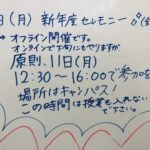 日(月) 新年度セレモニー
→オフライン開催です。
オンラインで下旬にもやりますが
原則、11日(月)
12:30〜16:00で参加を
場所はキャンパス!
この時間は授業も入れないで下さい。